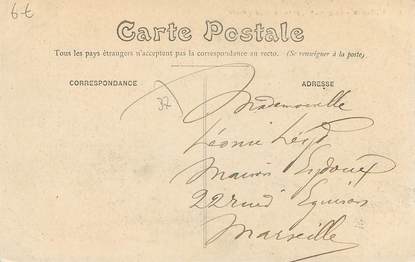 6-€
Carte Postale
Tous les pays étrangers n'acceptent pas la correspondance au recto. (Se renseigner à la poste)
CORRESPONDANCE
ADRESSE
37
Mademoiselle
Léonie
Maison
22 rue
Marseille